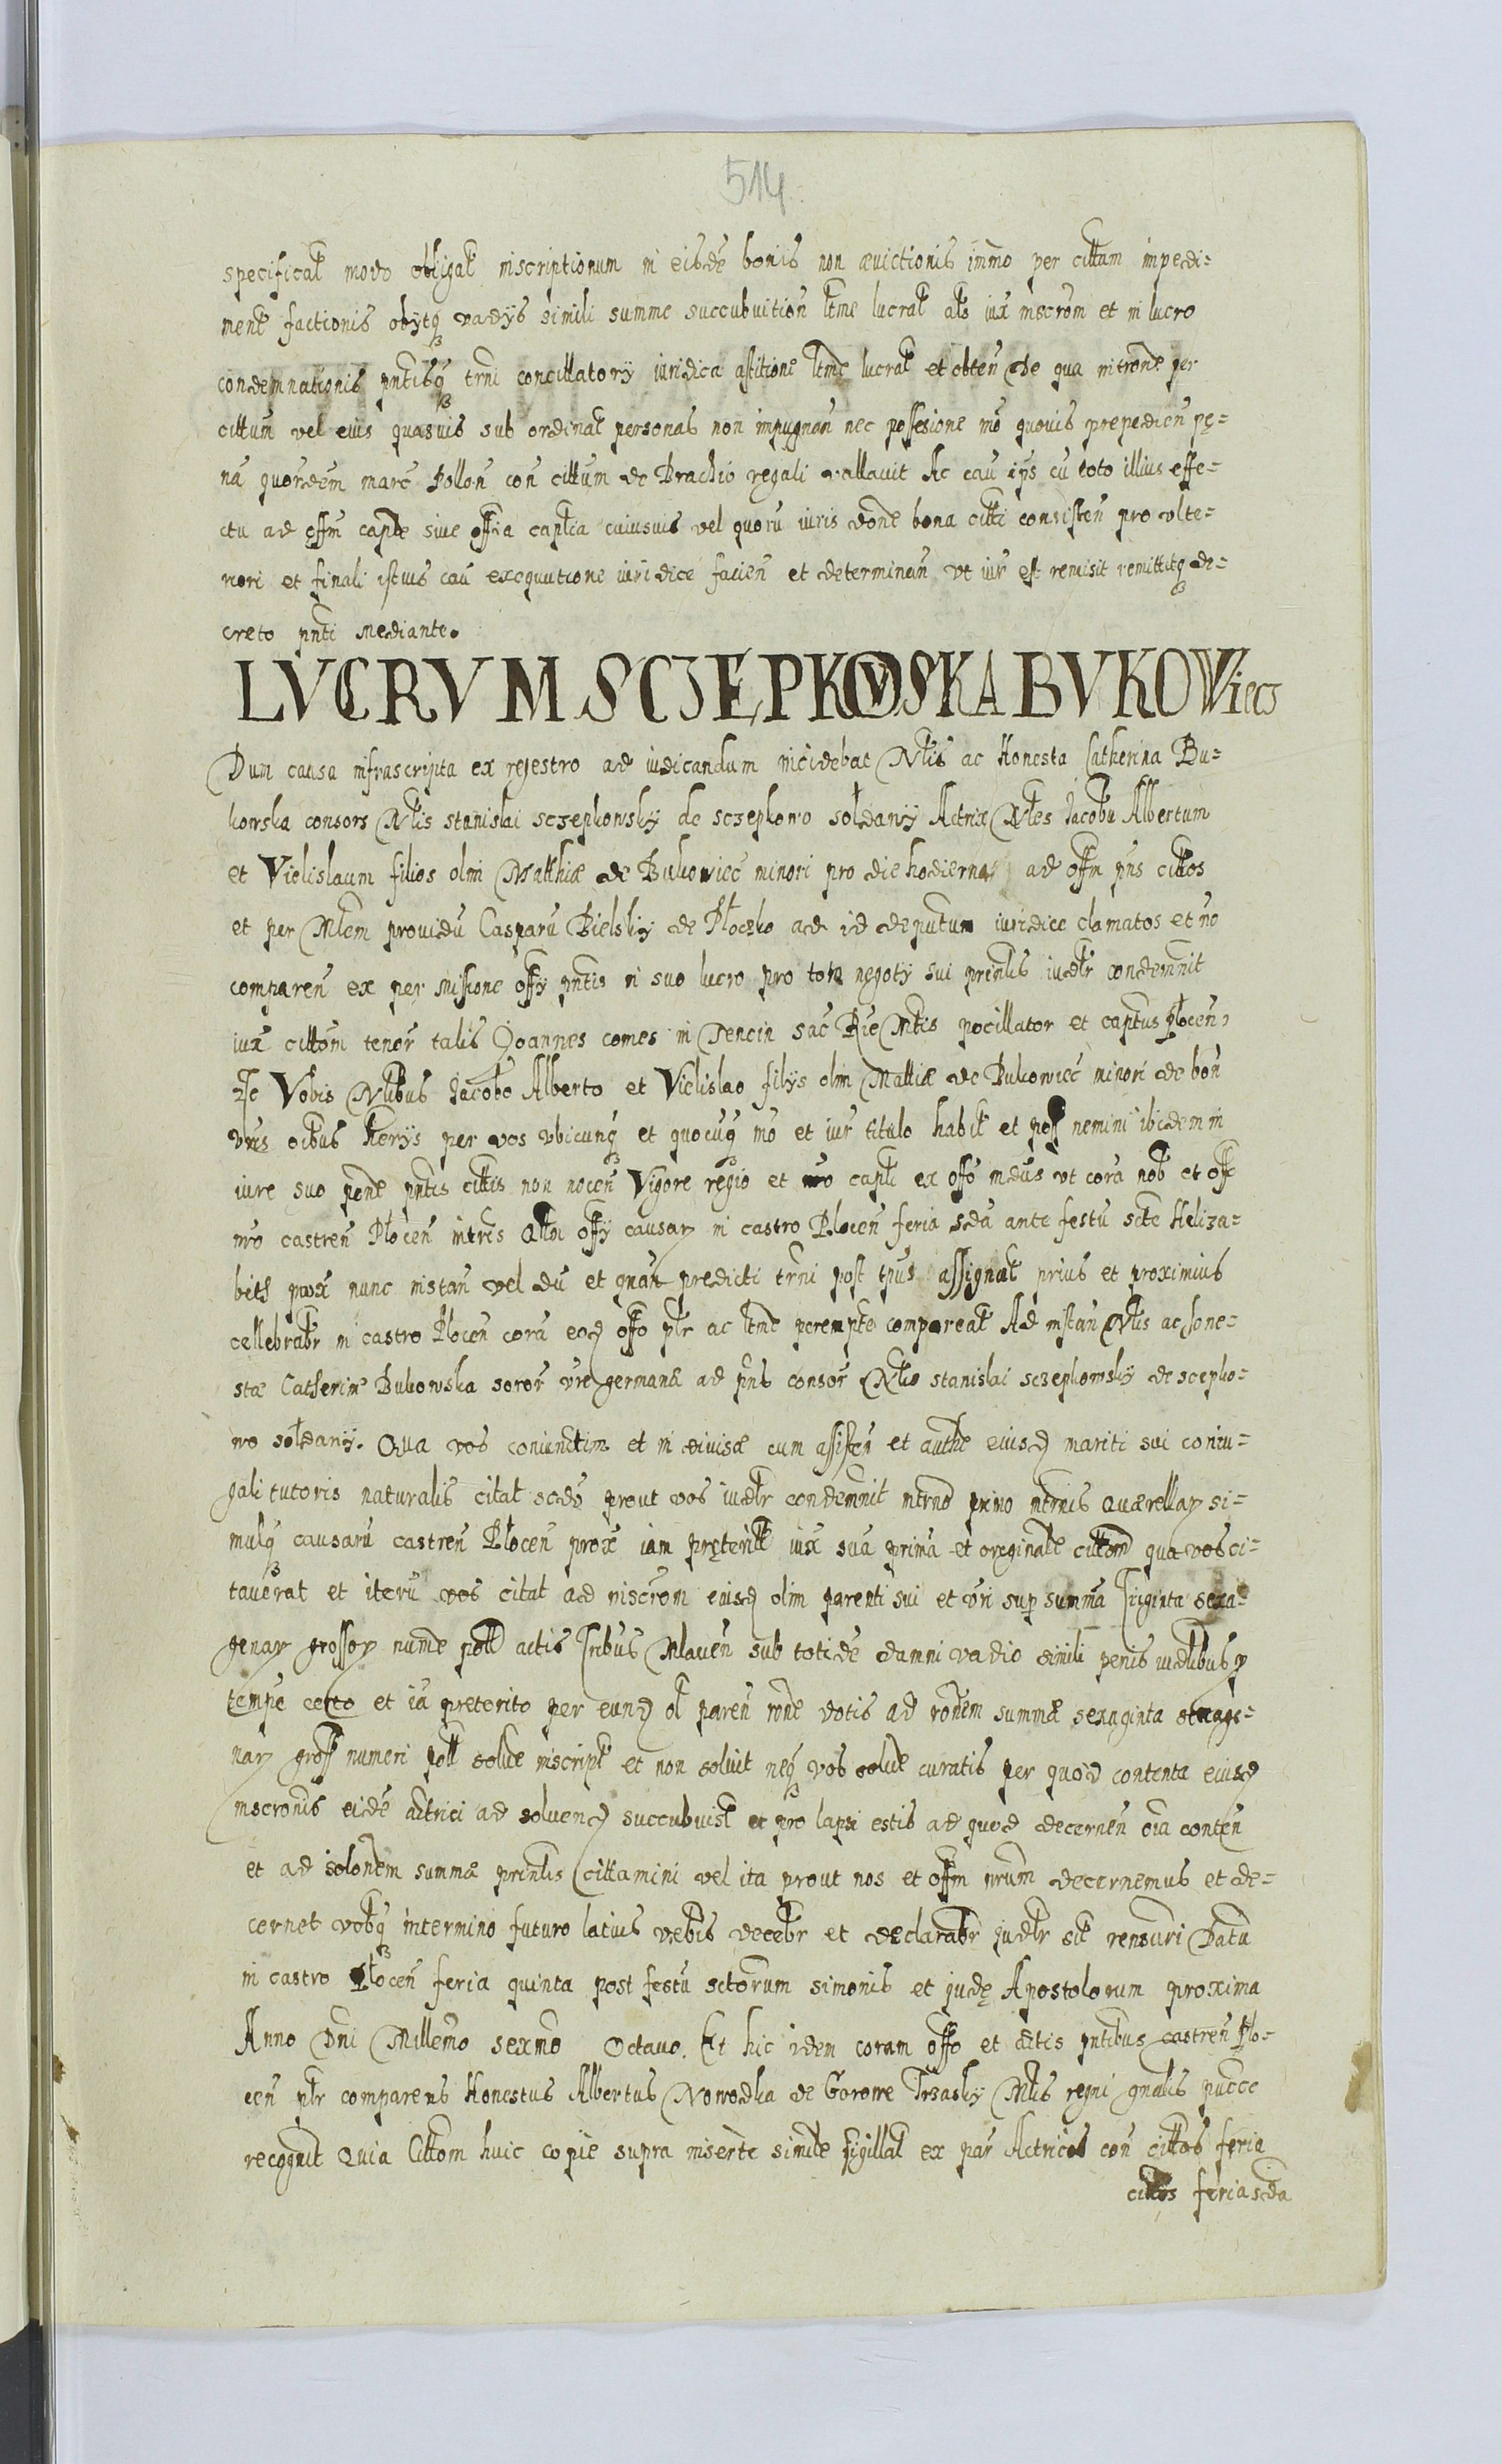 514
specificat modo obligat inscriptionum in eisdē bonis non æuictionis immo per cittum impedi=
ment factionis obytq vadÿs simili summe succubuition ltme lucrat ato iux inscrom et in lucro
condemnationis pntisq trni concillatorÿ iuridica astitione ltme lucrat et obten de qua intrond per
cittum vel eius quasuis sub ordinat personas non impugnan nec possesione mō quouis prepedien pę=
na quordem marc Pollon con cittum de Brachio regali vallauit Ac cau ips cu toto illius effe=
ctu ad offm capte siue offia captia cuiusuis vel quoru iuris done bona citti consisten pro vlte=
riori et finali istius cau exequutione iuridice facien et determinan vt iur est remisit remittitq de=
creto pnti mediante.
LVCRVM SCZEPKOWSKA BVKOWiecz
Dum causa infrascripta ex regestro ad iudicandum incidebat Nlis ac Honesta Catherina Bu=
kowska consors Nlis stanislai sczepkowskÿ de sczepkowo sołdanÿ Actrix Nles Jacobu Albertum
et Vielislaum filios olm Matthiæ de Bukowiec minori pro die hodierna ad offm pns cittos
et per Mlem prouidu Casparu Bielskÿ de Płoczko ad id deputum iuridice clamatos et nō
comparen ex per missione offÿ pntis in suo lucro pro tota negotÿ sui prinlis iudtr condemnit
iux cittom tenor talis Joannes comes in Tencin sac Rie Mtis pocillator et captus płocen
Vobis Nlibus Jacobo Alberto et Vielislao filÿs olm Mattiæ de Bukowiec minori de bon
vris oibus per vos vbicunq et quocuq mō et iur titulo habit et poss nemini ibidem in
iure suo pnte pntis cittis non nocen Vigore regio et nro capti ex offo mdus vt cora nob et offo
nro castren Płocen intres offÿ causar in castro Płocen feria sda ante festu scte Heliza=
beth prox nunc instan vel du et gnan predicti trni post tpus assignat prius et proximius
cellebrabr in castro Płocen cora eod offo plr ac ltme perempte compareat Ad instan Nlis ac hone=
stæ Catherinæ Bukowska soror vre germana ad pns consor Nlis stanislai sczepkowskÿ de sczepko=
wo sołdanÿ. Qua vos coniunctim et in diuise cum assisten et auctte eiusd mariti sui coniu=
gali tutoris naturalis citat prout vos iudtr condemnit primo Quærellar si=
mulq causaru castren Płocen prox iam pręterit iux sua prima et originale cittom qua vos ci=
tauerat et iteru vos citat ad inscrom eiusd olim parenti sui et vri sup summa Triginta sexa=
genar grossor numde poll actis Tribus Mlauen sub totide damni vadio simili penis iudlibus p
tempe certo et ia preterito per eund ol paren rone dotis ad ronem summæ sexaginta sexage=
nar gross numeri poll solde inscript et non soluit neq vos solue curatis per quod contenta eiusd
inscronis eide actrici ad soluend succubuist et pro lapsi estis ad quod decernen oia conten
et ad solonem summæ prinlis Cittamini vel ita prout nos et offm nrum decernemus et de=
cernet vobq intermino futuro latius vrbis decebr et declarabr judtr sit rensuri Datu
in castro Płocen feria quinta post festu sctorum simonis et judę Apostolorum proxima
Anno Dni Millemo sexmo Octauo. Et hic idem coram offo et actis pntibus castren Plo=
cen plr comparens Honestus Albertus Nowodka de Gorowe Trzaskÿ Mlis regni gnalis
recognit Quia Cittom huic copie supra inserte simile sigillat ex par Actricis con cittos feria
cittos feria scda